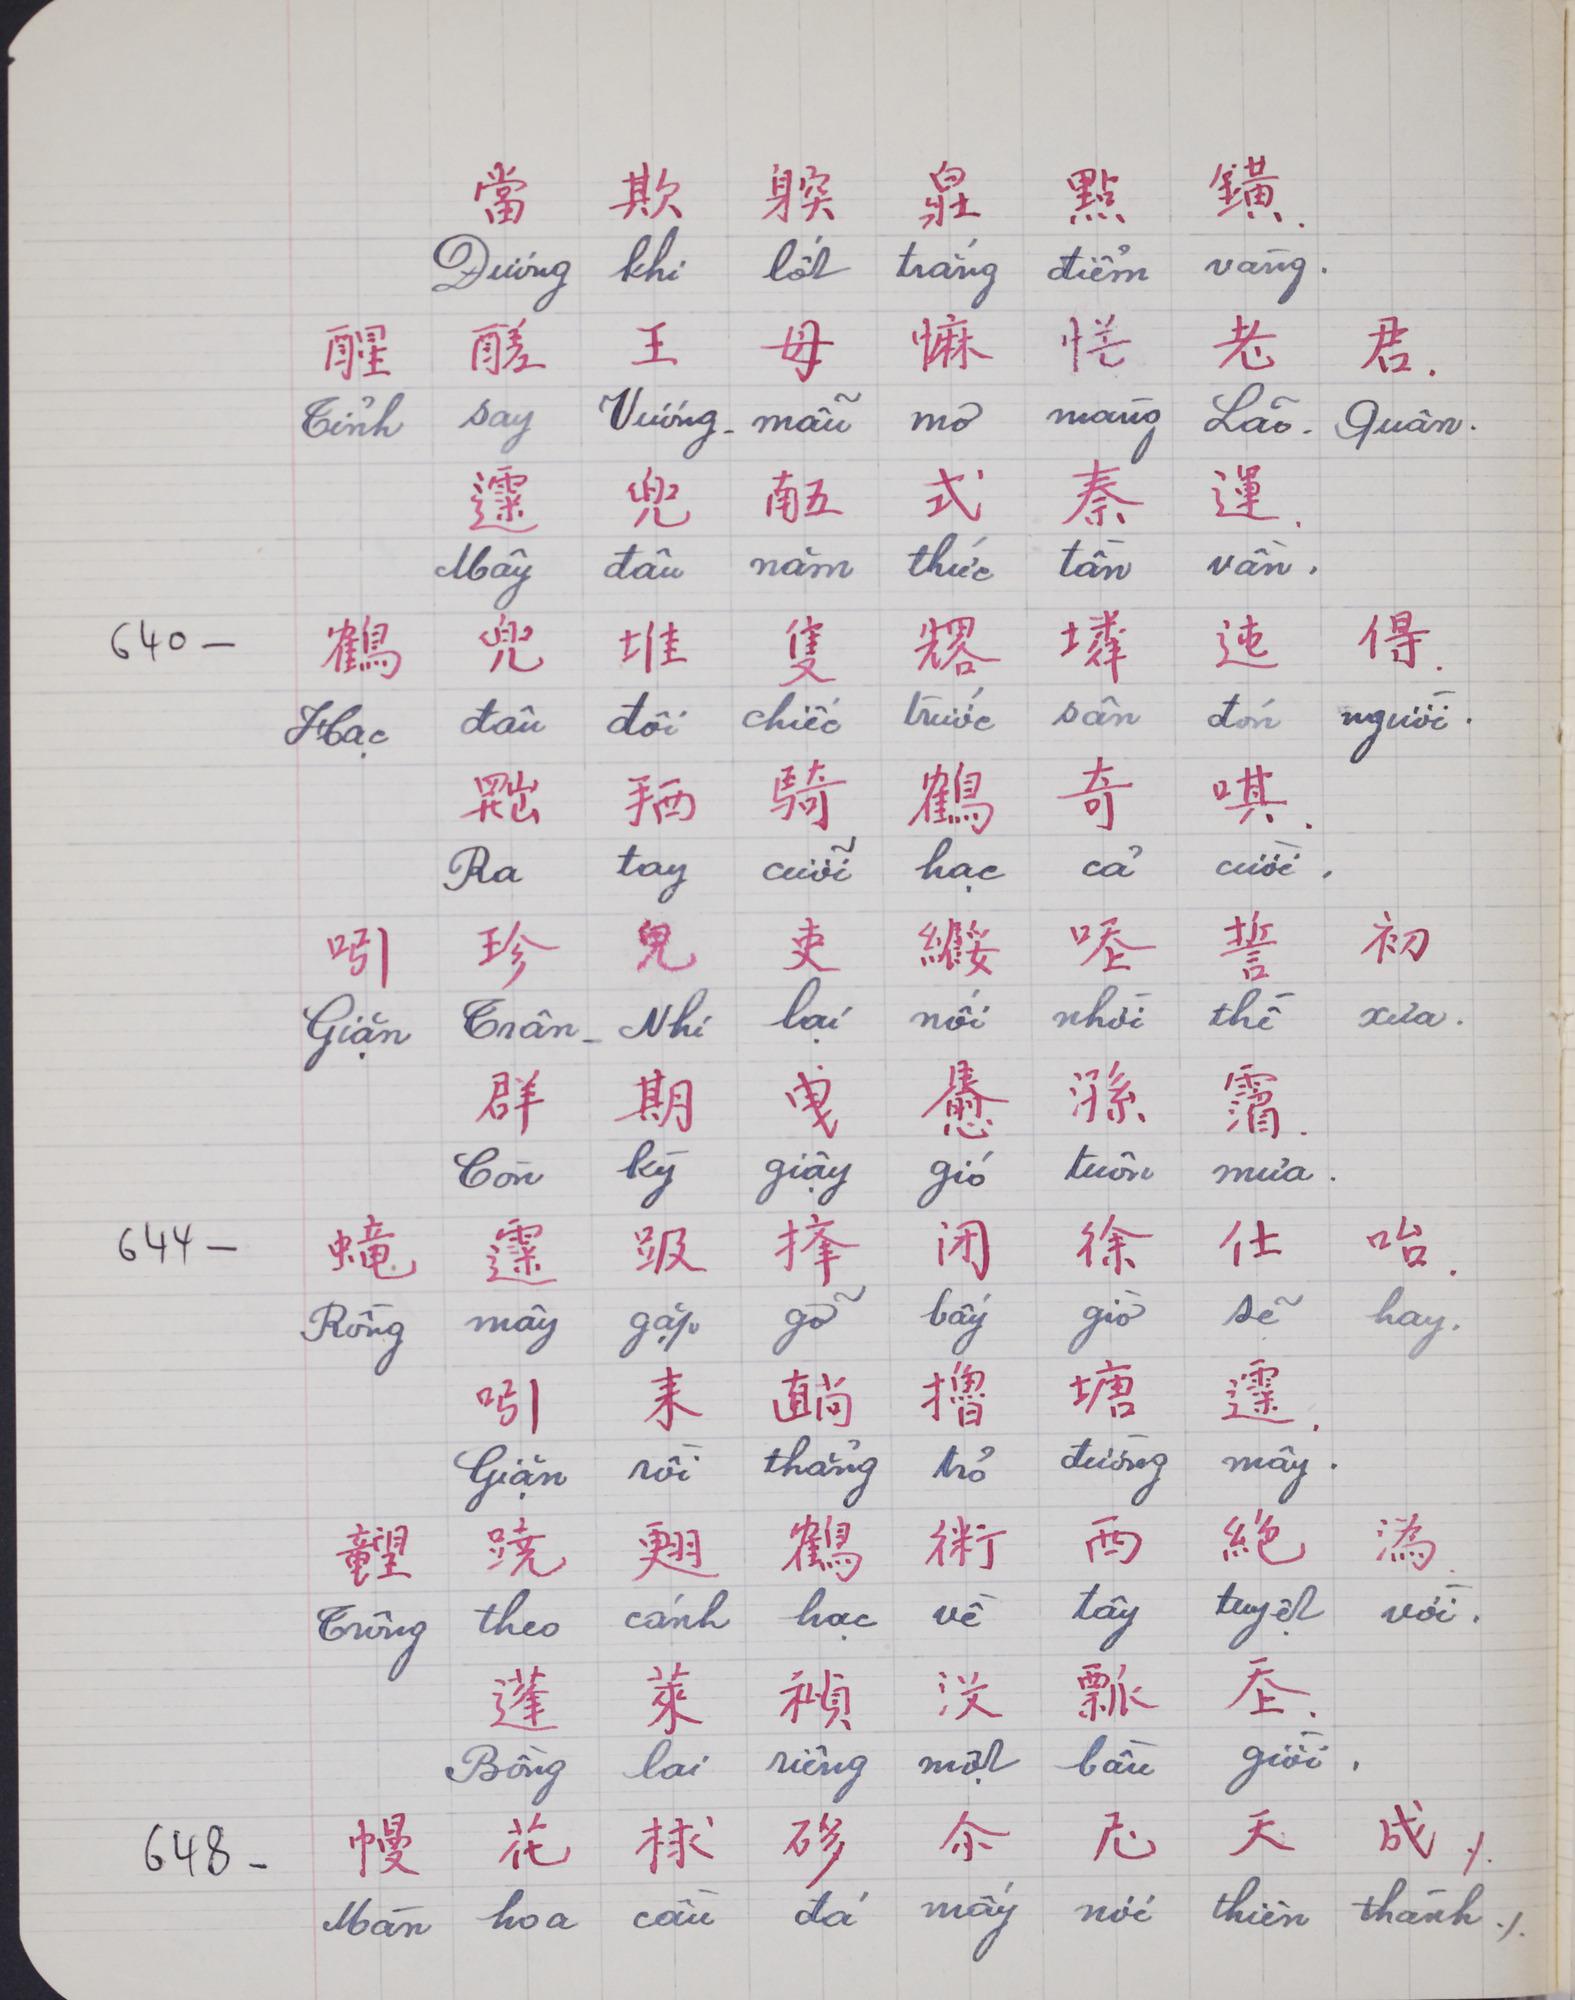 當 欺 𨈿 𤽸 點 鐄.
Đương khi lốt trắng điểm vàng.
醒 醝 王 母 𢠩 恾 老 君.
Tỉnh say Vương-mẫu mơ màng Lão-Quân.
䨶 兜 𠄼 式 秦 運.
Mây đâu năm thức tần vần.
640— 鶴 兜 堆 隻 𠓀 𡑝 迍 得.
Hạc đâu đôi chiếc trước sân đón người.
𦋦 拪 騎 鶴 奇 唭.
Ra tay cưỡi hạc cả cười.
吲 珍 兒 吏 𦇒 𠳒 誓 初
Giặn Trân-Nhi lại nối nhời thề xưa.
群 期 曳 𢙇 㵢 𩅹.
Còn kỳ giậy gió tuôn mưa.
644— 蠬 䨶 趿 擇 閉 徐 仕 咍.
Rồng mây gặp gỡ bấy giờ sẽ hay.
吲 耒 𥊣 擼 塘 䨶.
Giặn rồi thẳng trỏ đường mây.
𥊀 蹺 翅 鶴 術 西 絶 潙.
Trông theo cánh hạc về tây tuyệt vời.
蓬 萊 禎 没 瓢 𡗶.
Bồng lai riêng một bầu giời.
648- 幔 花 梂 𥒥 尒 尼 天 成 ./.
Màn hoa cầu đá mấy nơi thiên thành ./.